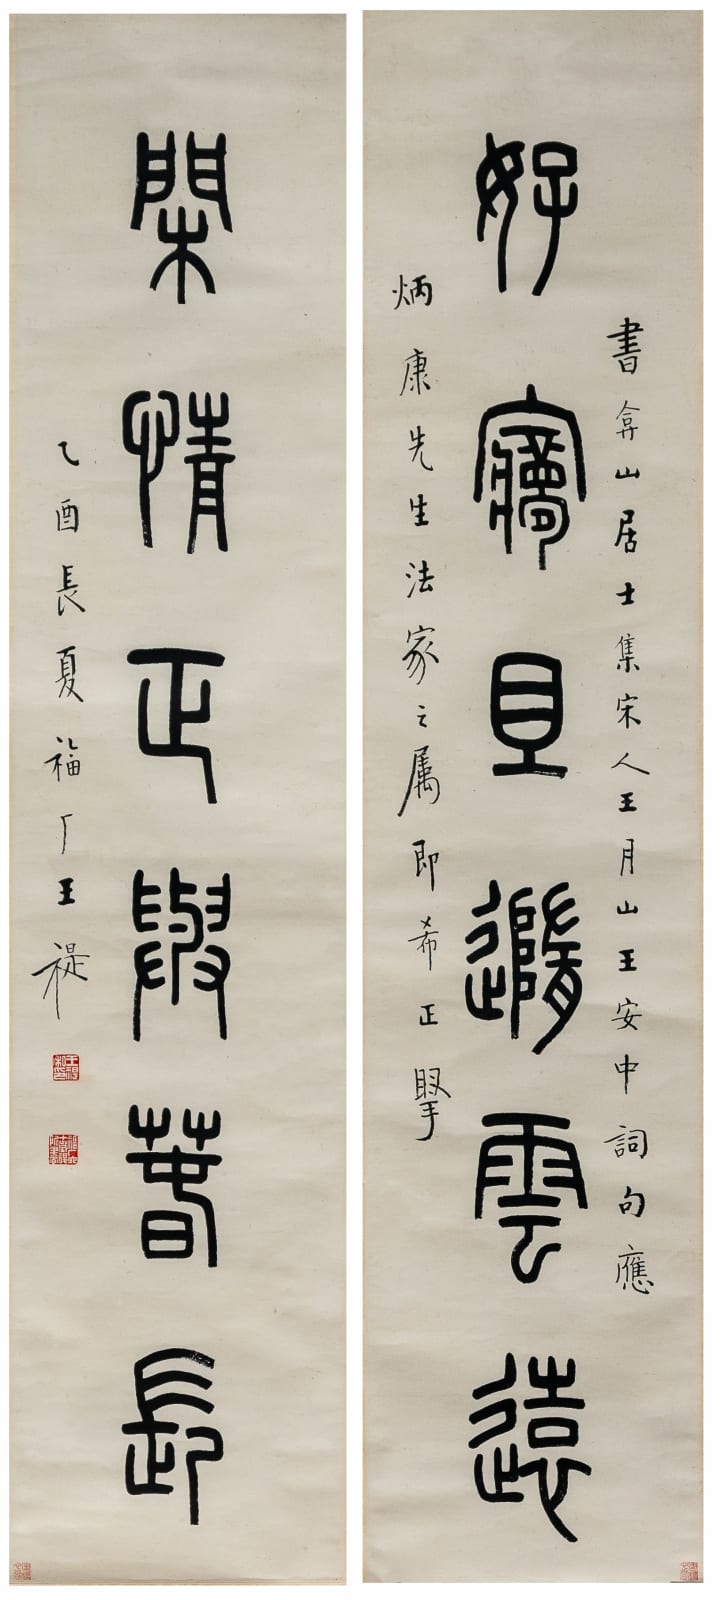 好夢且隨雲遠
書弇山居士集宋人王月山王安中詞句應
炳康先生法家之属即希正掔
閑情正與春長
乙酉長夏福厂王禔